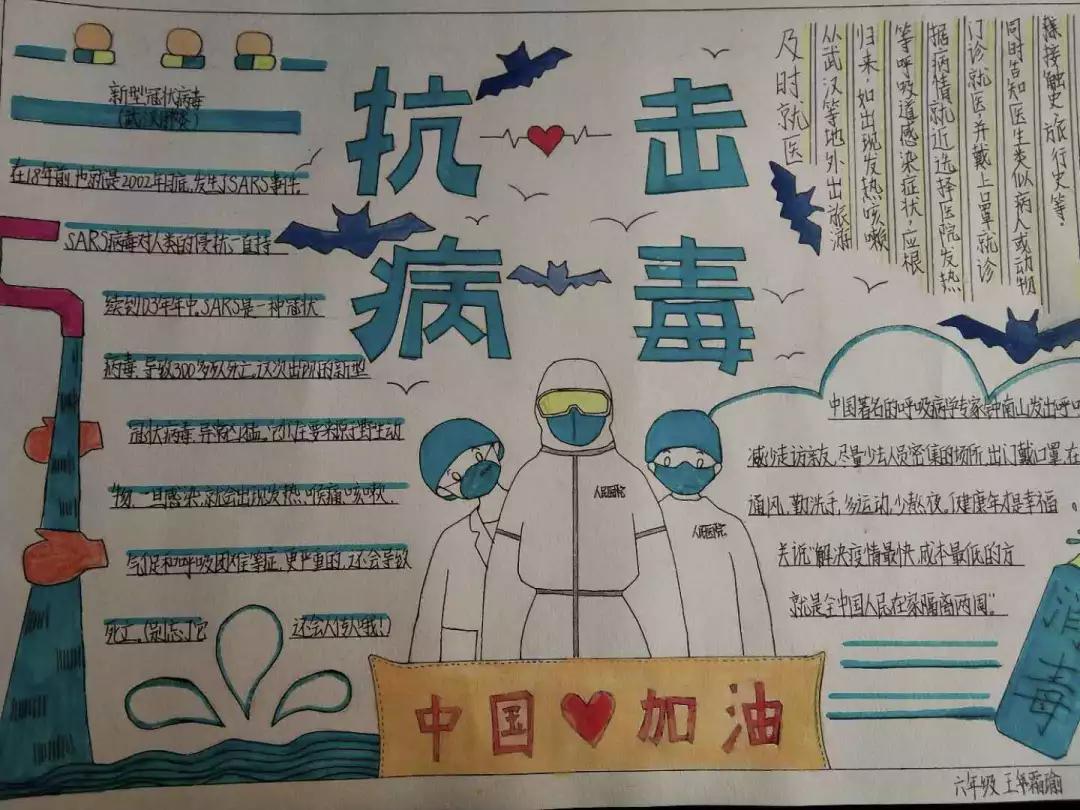 抗击
病毒
新型冠状病毒
在18年前,也就是2002年年底,发生了SARS事件
SARS病毒对人类的侵扰一直持
续到03年年中。SARS是一种冠状
病毒,导致300多人死亡,这次出现的新型
冠状病毒,异常凶猛,它
野生动
物,一旦感染,就会出现发热,喉痛,咳嗽,
气促和呼吸困难等症,更严重的,还会导致
死亡。(别忘了它
还会人传人哦!)
及时就医
从武汉等地外出旅游
归来,如出现发热咳嗽
等呼吸道感染症状,应根
据病情就近选择医院发热
门诊就医,并戴上口罩就诊
同时告知医生类似病人或动物
接触史,旅行史等.
中国著名的呼吸病学专家钟南山发出呼吁
减少走访亲友,尽量少去人员密集的场所,出门戴口罩,在
通风,勤洗手,多运动,少熬夜。健康年才是幸福
关说"解决疫情最快,成本最低的方
就是全中国人民在家隔离两周"。
人民医院
人民医院
消毒
中国加油
六年级 王